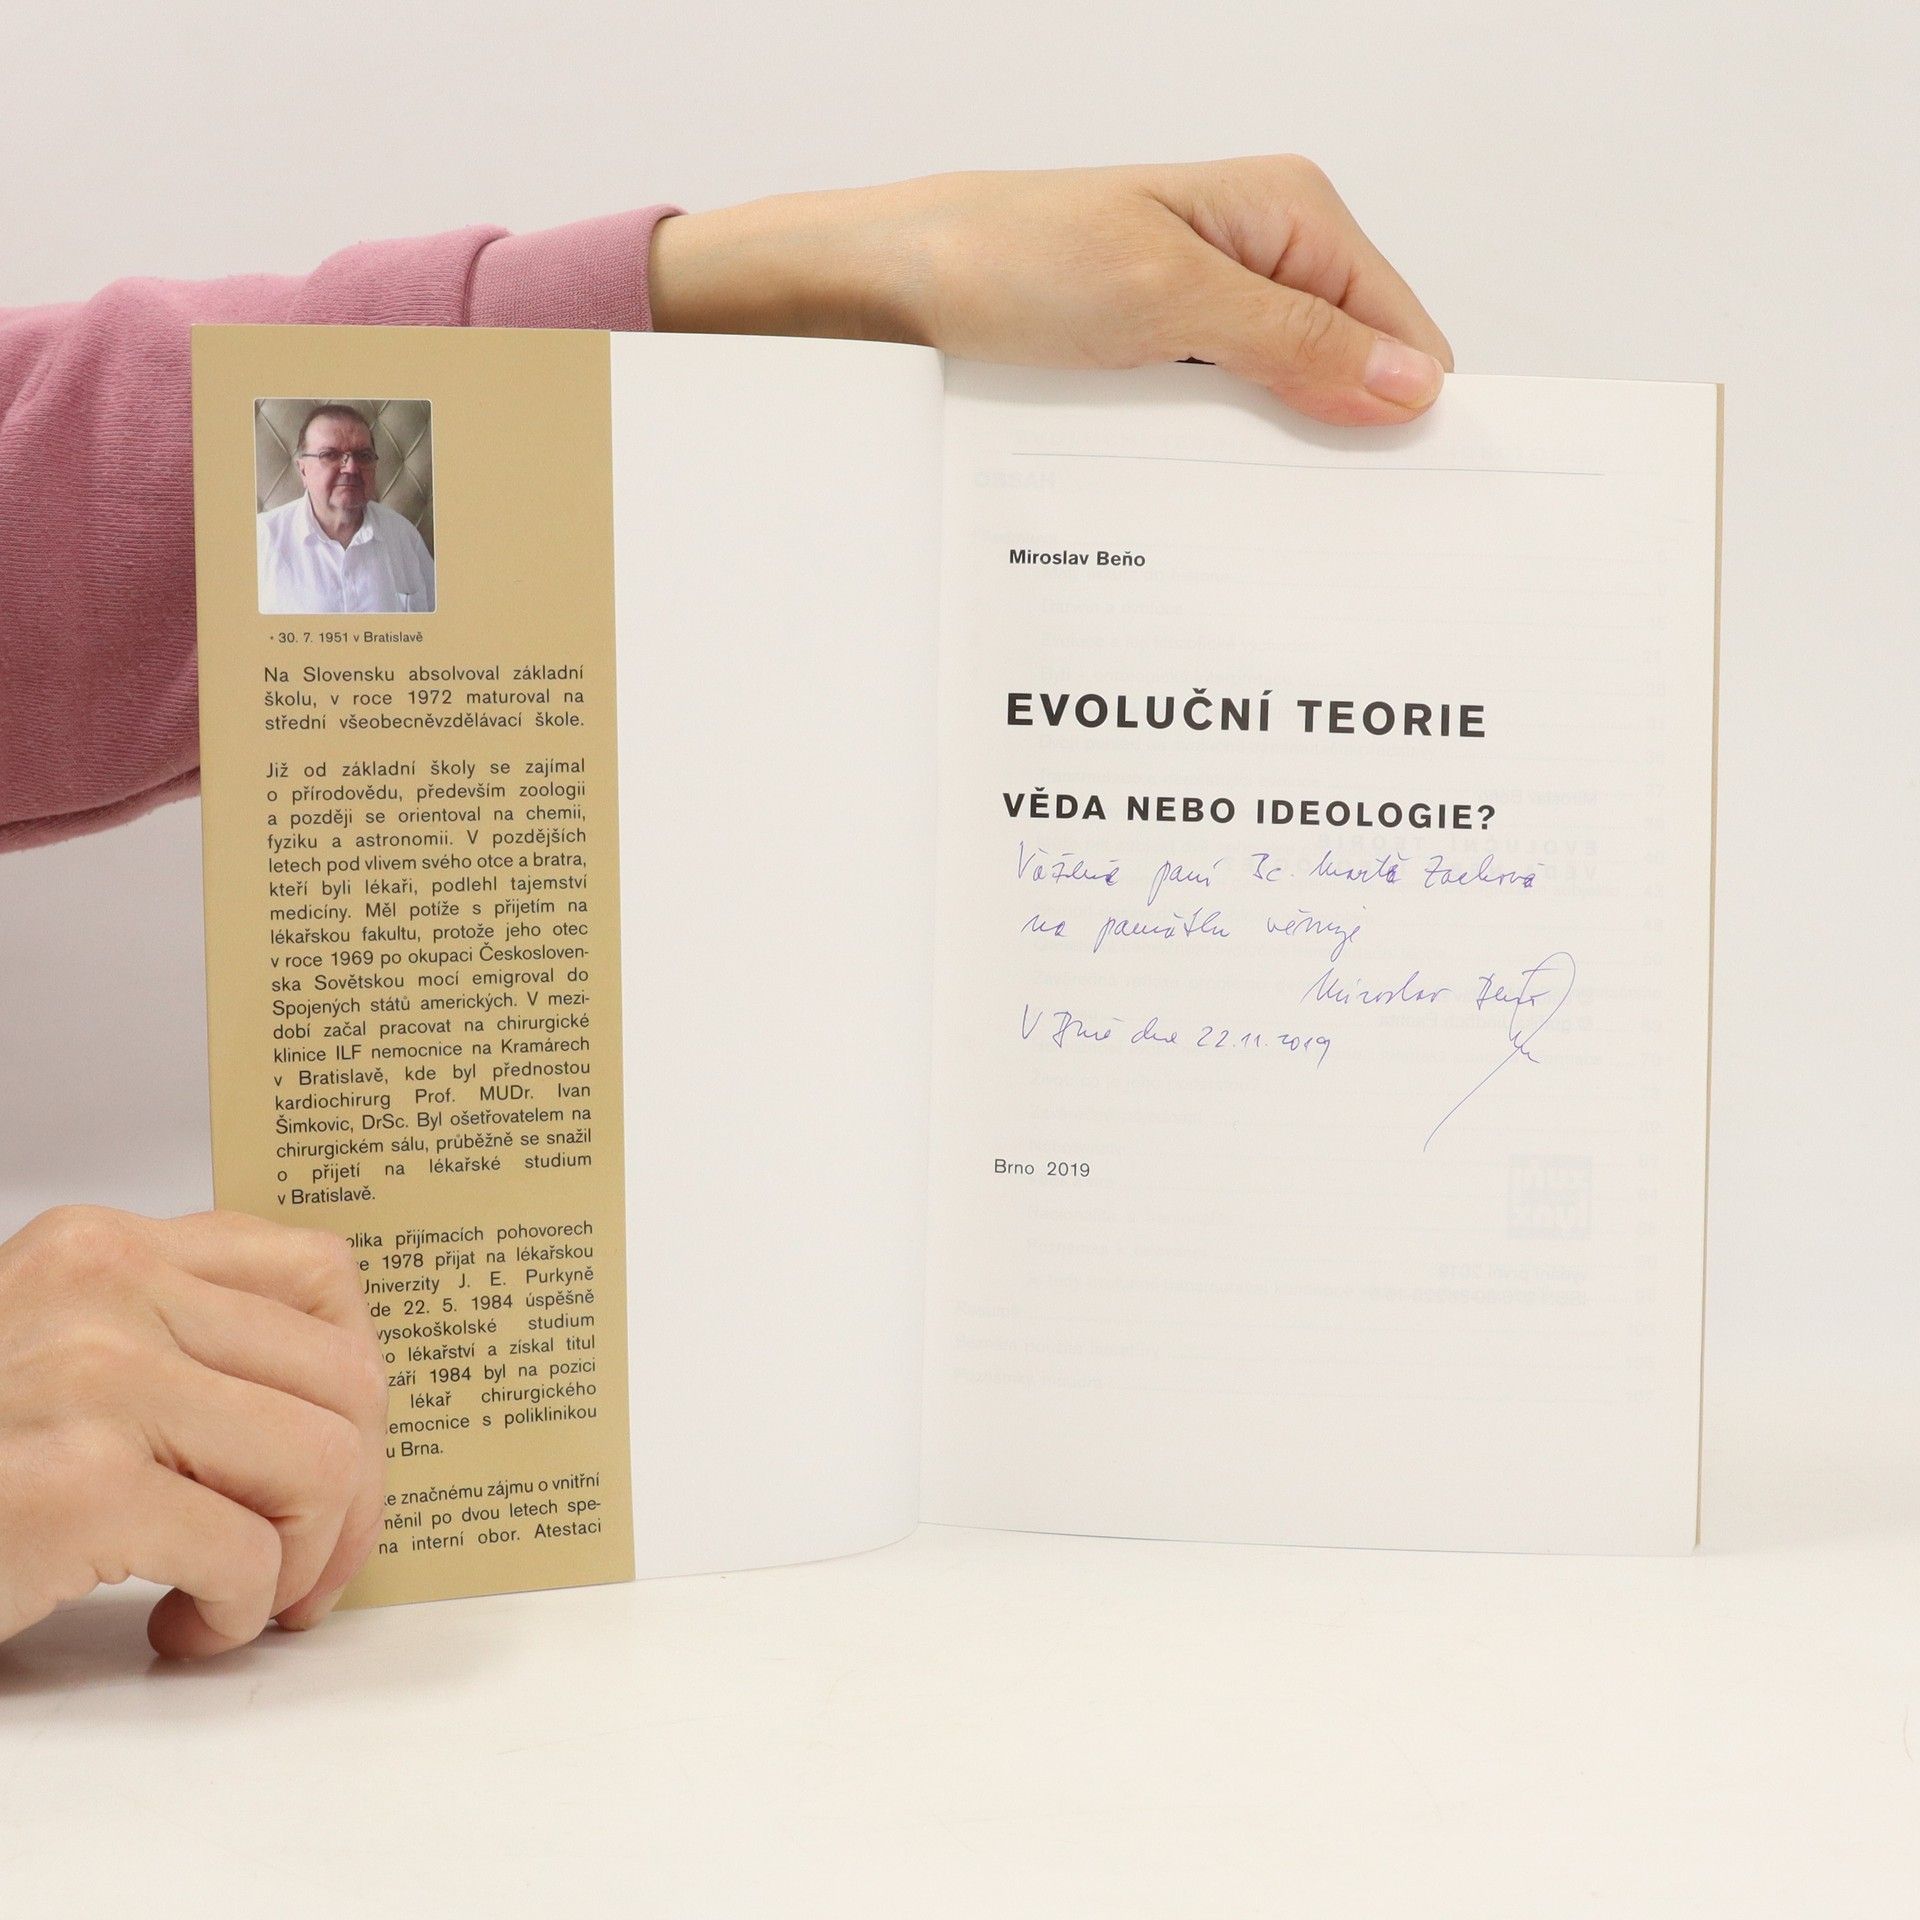 • 30. 7. 1951 v Bratislavě
Na Slovensku absolvoval základní
školu, v roce 1972 maturoval na
střední všeobecněvzdělávací škole.
Již od základní školy se zajímal
o přírodovědu, především zoologii
a později se orientoval na chemii,
fyziku a astronomii. V pozdějších
letech pod vlivem svého otce a bratra,
kteří byli lékaři, podlehl tajemství
medicíny. Měl potíže s přijetím na
lékařskou fakultu, protože jeho otec
v roce 1969 po okupaci Českosloven-
ska Sovětskou mocí emigroval do
Spojených států amerických. V mezi-
dobí začal pracovat na chirurgické
klinice ILF nemocnice na Kramárech
v Bratislavě, kde byl přednostou
kardiochirurg Prof. MUDr. Ivan
Šimkovic, DrSc. Byl ošetřovatelem na
chirurgickém sálu, průběžně se snažil
o přijetí na lékařské studium
v Bratislavě.
přijímacích pohovorech
1978 přijat na lékařskou
Univerzity J. E. Purkyně
22. 5. 1984 úspěšně
vysokoškolské studium
lékařství a získal titul
září 1984 byl na pozici
lékař chirurgického
nemocnice s poliklinikou
u Brna.
značnému zájmu o vnitřní
po dvou letech spe-
na interní obor. Atestaci
Miroslav Beňo
EVOLUČNÍ TEORIE
VĚDA NEBO IDEOLOGIE?
Vážené paní Bc. Martě
na památku věnuje
Miroslav Beňo
V Brně dne 22.11.2019
Brno 2019